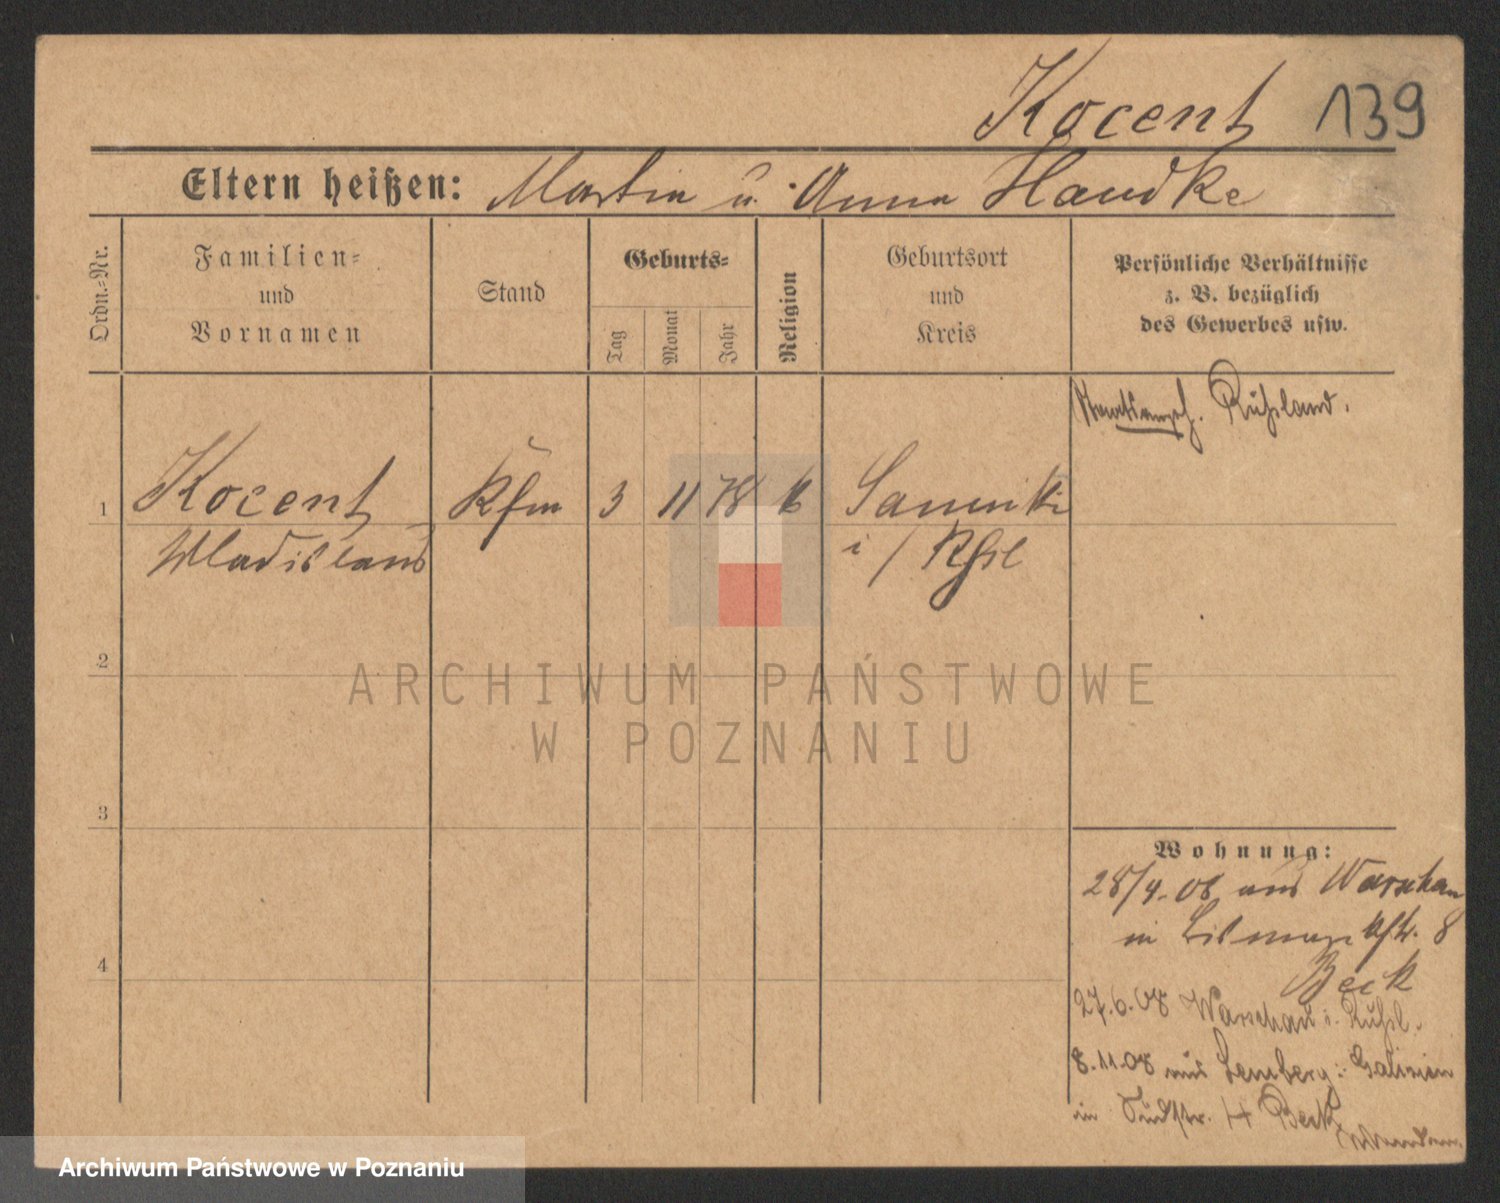 Kocent 139
Eltern heißen: Martin u. Anna Handke
Ordn.-Nr.
Familien-
und
Vornamen
Stand
Geburts-
Tag
Monat
Jahr
Religion
Geburtsort
und
Kreis
Persönliche Verhältnisse
z. B. bezüglich
des Gewerbes usw.
Staatsangeh. Rußland.
1 Kocent Kfm 3 11 78 k
Wladislaus i/ Rßl
2
ARCHIWUM PAŃSTWOWE
W POZNANIU
3
Wohnung:
28/4. 08 aus Warschau
in Bismarckstr. 8
Beck
4
27.6.08 Warschau i. Rußl.
8.11.08 aus Lemberg i. Galizien
in Südstr. 14 Beck
Archiwum Państwowe w Poznaniu